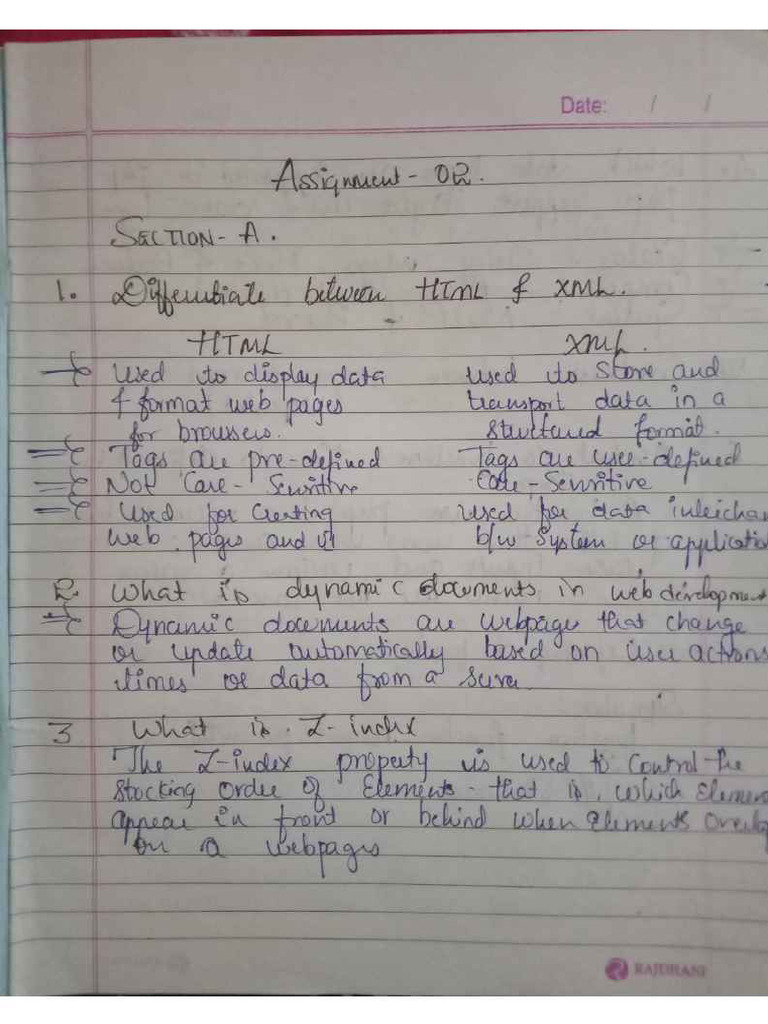 Date: / /
Assignment - 02.
SECTION - A.
1. Differentiate between HTML & XML.
HTML XML.
Used to display data used to store and
& format web pages transport data in a
for browsers. structured format.
Tags are pre-defined Tags are user-defined
Not Case-Sensitive Case-Sensitive
Used for Creating used for data
web pages and b/w System or
2. What is dynamic documents in web development
Dynamic documents are webpage that change
or update automatically based on user actions
times or data from a
3 What is Z-index
The Z-index property is used to control the
stacking order of Elements - that is, which
appear in front or behind when Elements
on a webpages
RAJDHANI